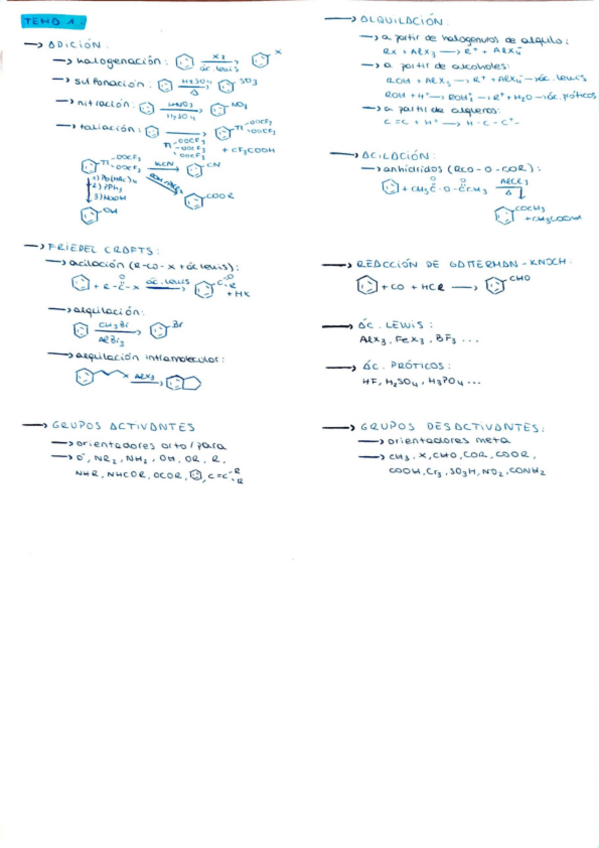 TEMA 1.
→ ADICIÓN:
→ halogenación: X₂ ác. lewis X
→ sulfonación: H₂SO₄ Δ SO₃
→ nitración: HNO₃ H₂SO₄ NO₂
→ taliación: Tl -OOCF₃ -OOCF₃
Tl -OOCF₃ -OOCF₃ -OOCF₃ + CF₃COOH
Tl -OOCF₃ -OOCF₃ KCN CN
1) Pb(Ac)₄
2) PPh₃
3) NaOH
COOR
OH
→ FRIEDEL CRAFTS:
→ acilación (R-CO-X + ác lewis):
+ R-C-X O ác. lewis C-R O + HX
→ alquilación:
CH₃Br AlBr₃ Br
→ alquilación intramolecular:
X AlX₃
→ GRUPOS ACTIVANTES
→ orientadores orto/para
→ O⁻, NR₂, NH₂, OH, OR, R,
NHR, NHCOR, OCOR, , C=C-R R
→ ALQUILACIÓN:
→ a partir de halogenuros de alquilo:
RX + AlX₃ → R⁺ + AlX₄⁻
→ a partir de alcoholes:
ROH + AlX₃ → R⁺ + AlX₄⁻ → ác. lewis
ROH + H⁺ → ROH₂⁺ → R⁺ + H₂O → ác. próticos
→ a partir de alquenos:
C=C + H⁺ → H-C-C⁺-
→ ACILACIÓN:
→ anhidridos (RCO-O-COR):
+ CH₃C-O-CCH₃ O O AlCl₃ Δ
COCH₃
+ CH₃COOH
→ REACCIÓN DE GATTERMAN-KNOCH:
+ CO + HCl → CHO
→ ÁC. LEWIS:
AlX₃, FeX₃, BF₃ ...
→ ÁC. PRÓTICOS:
HF, H₂SO₄, H₃PO₄ ...
→ GRUPOS DESACTIVANTES:
→ orientadores meta
→ CH₃, X, CHO, COR, COOR,
COOH, CF₃, SO₃H, NO₂, CONH₂